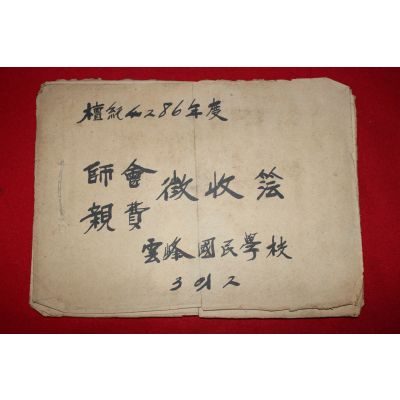 檀紀4286年度
師親會費 徵收簿
雲峰國民學校
3의2